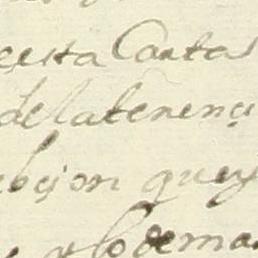 çesta Cartas
delatenençi
bçion quey
ylodemas